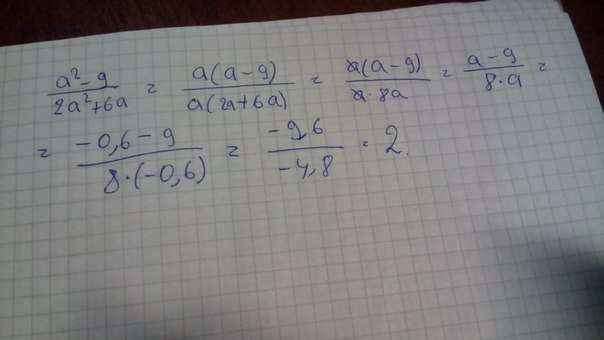 (a²-9)/(2a²+6a) = (a(a-9))/(a(2a+6a)) = (a(a-9))/(a·8a) = (a-9)/(8·a) =
= (-0,6-9)/(8·(-0,6)) = (-9,6)/(-4,8) = 2.